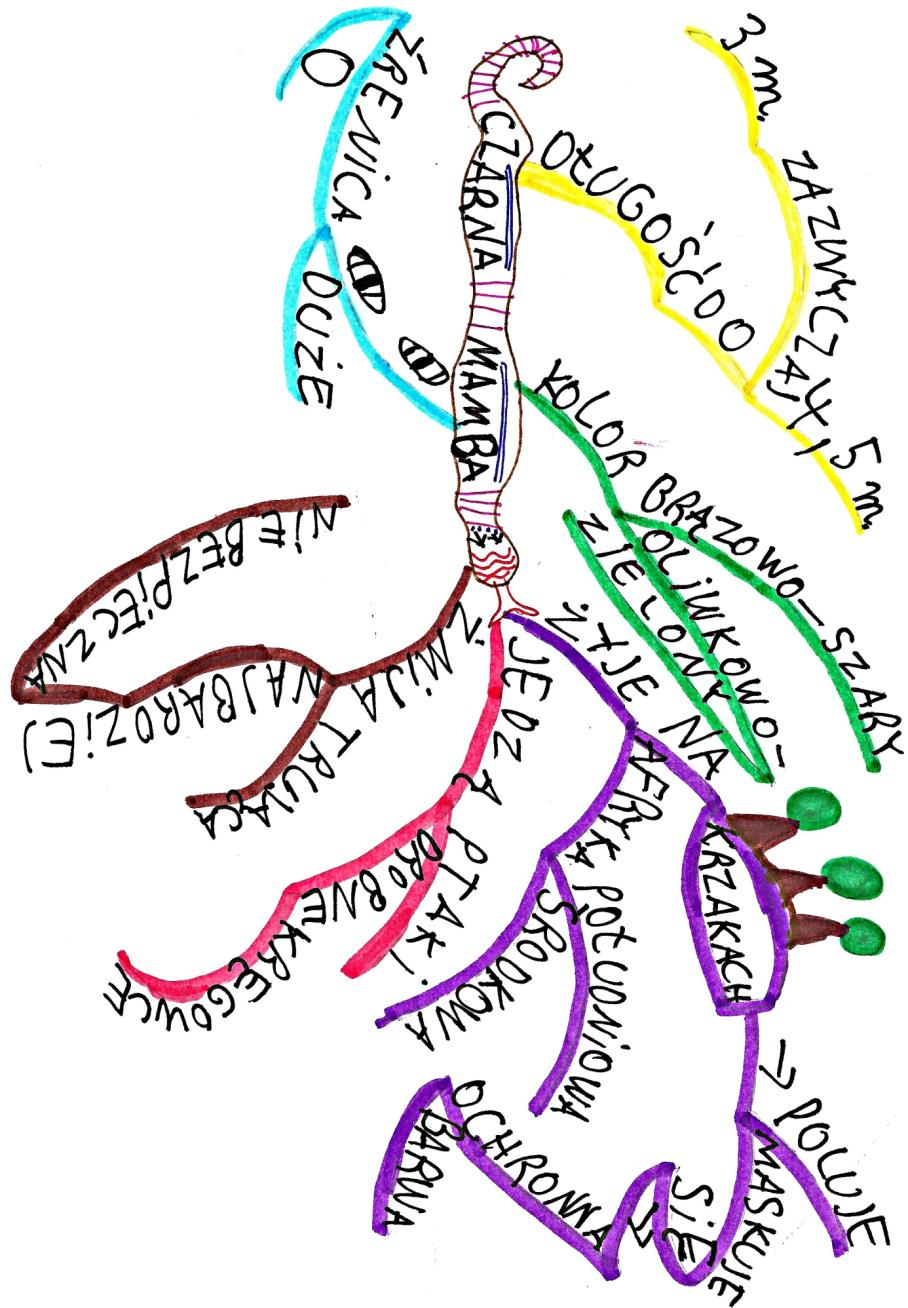 CZARNA MAMBA
DŁUGOŚĆ DO
3 m.
ZAZWYCZAJ
4,5 m.
KOLOR
BRAZOWO-SZARY
OLIWKOWO-
ZIELONY
ŻYJE NA
KRZAKACH
→ POLUJE
MASKUJE
SIĘ
OCHRONNA
BARWA
AFRYKA
POŁUDNIOWA
ŚRODKOWA
JEDZĄ
PTAKI
DROBNE
KRĘGOWCE
ŻMIJA
TRUJĄCA
NAJBARDZIEJ
NIEBEZPIECZNA
ŹRENICA
O
DUŻE